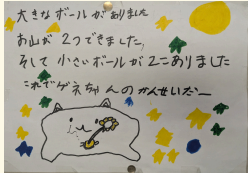 大きなボールがありました
お山が2つできました。
そして小さいボールが2こありました
これでゲネちゃんのかんせいだー